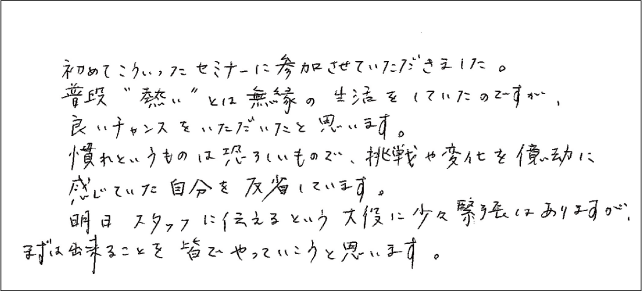 初めてこういったセミナーに参加させていただきました。
普段"熱い"とは無縁の生活をしていたのですが、
良いチャンスをいただいたと思います。
慣れというものは恐ろしいもので、挑戦や変化を億劫に
感じていた自分を反省しています。
明日スタッフに伝えるという大役に少々緊張はありますが、
まずは出来ることを皆でやっていこうと思います。